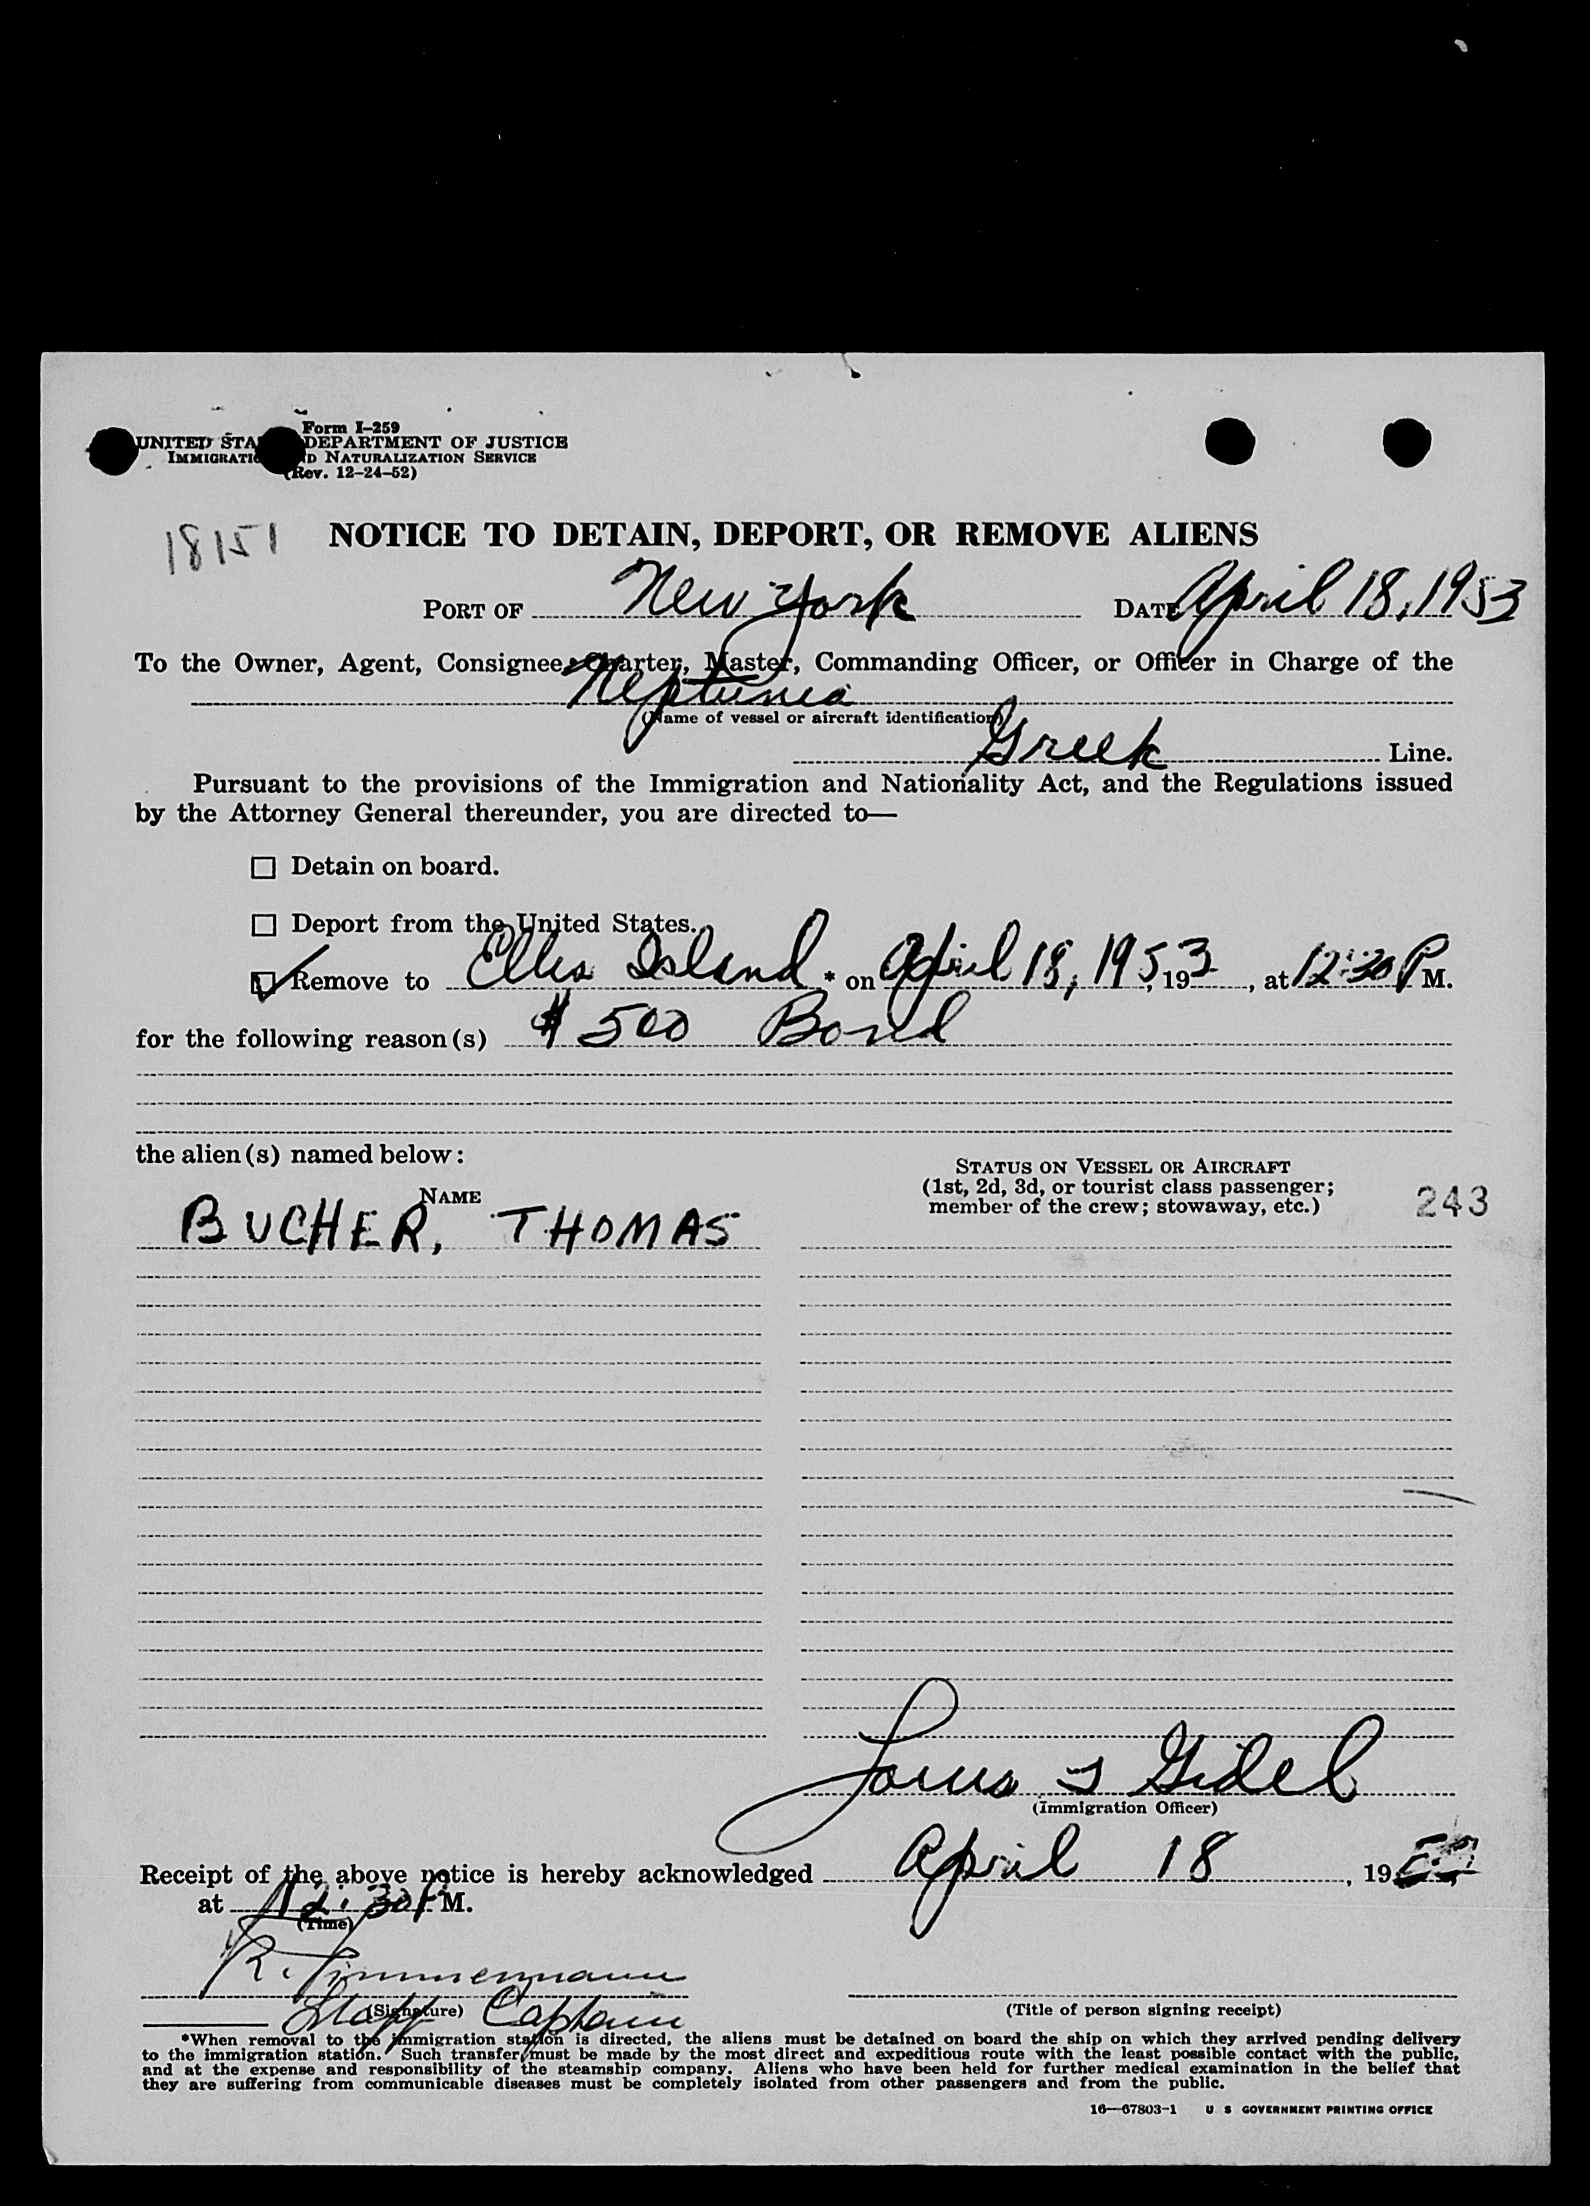 Form I–259
UNITED STA DEPARTMENT OF JUSTICE
IMMIGRATIO D NATURALIZATION SERVICE
(Rev. 12–24–52)
18151
NOTICE TO DETAIN, DEPORT, OR REMOVE ALIENS
PORT OF New York DATE April 18, 1953
To the Owner, Agent, Consignee, Charter, Master, Commanding Officer, or Officer in Charge of the
Neptunia
(Name of vessel or aircraft identification)
Greek Line.
Pursuant to the provisions of the Immigration and Nationality Act, and the Regulations issued
by the Attorney General thereunder, you are directed to—
Detain on board.
Deport from the United States.
Remove to Ellis Island * on April 18, 195, 193, at 12:30 P M.
for the following reason(s) $500 Bond
the alien(s) named below:
STATUS ON VESSEL OR AIRCRAFT
(1st, 2d, 3d, or tourist class passenger;
member of the crew; stowaway, etc.)
243
NAME
BUCHER, THOMAS
Louis Gidel
(Immigration Officer)
Receipt of the above notice is hereby acknowledged April 18, 19
at 12:30 P M.
(Time)
R. Timmermann
(Signature)
Staff Captain
(Title of person signing receipt)
*When removal to the immigration station is directed, the aliens must be detained on board the ship on which they arrived pending delivery
to the immigration station. Such transfer must be made by the most direct and expeditious route with the least possible contact with the public,
and at the expense and responsibility of the steamship company. Aliens who have been held for further medical examination in the belief that
they are suffering from communicable diseases must be completely isolated from other passengers and from the public.
16—67803-1 U S GOVERNMENT PRINTING OFFICE